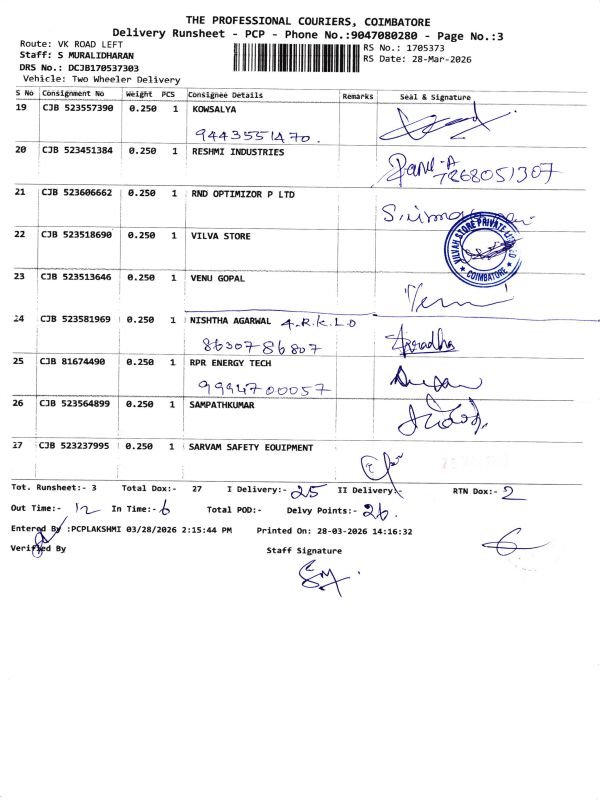 THE PROFESSIONAL COURIERS, COIMBATORE
Delivery Runsheet - PCP - Phone No.:9047080280 - Page No.:3
Route: VK ROAD LEFT
Staff: S MURALIDHARAN
DRS No.: DCJB170537303
Vehicle: Two Wheeler Delivery
RS No.: 1705373
RS Date: 28-Mar-2026
S No Consignment No Weight PCS Consignee Details Remarks Seal & Signature
19 CJB 523557390 0.250 1 KOWSALYA
9443551470.
20 CJB 523451384 0.250 1 RESHMI INDUSTRIES
7268051307
21 CJB 523606662 0.250 1 RND OPTIMIZOR P LTD
22 CJB 523518690 0.250 1 VILVA STORE
VILVAH STORE PRIVATE LIMITED
COIMBATORE
23 CJB 523513646 0.250 1 VENU GOPAL
24 CJB 523581969 0.250 1 NISHTHA AGARWAL A.R.K.L.D
8630786807 Anuradha
25 CJB 81674490 0.250 1 RPR ENERGY TECH
9994700057
26 CJB 523564899 0.250 1 SAMPATHKUMAR
27 CJB 523237995 0.250 1 SARVAM SAFETY EQUIPMENT
Tot. Runsheet:- 3 Total Dox:- 27 I Delivery:- 25 II Delivery:- RTN Dox:- 2
Out Time:- 12 In Time:- 6 Total POD:- Delvy Points:- 26.
Entered By :PCPLAKSHMI 03/28/2026 2:15:44 PM Printed On: 28-03-2026 14:16:32
Verified By Staff Signature